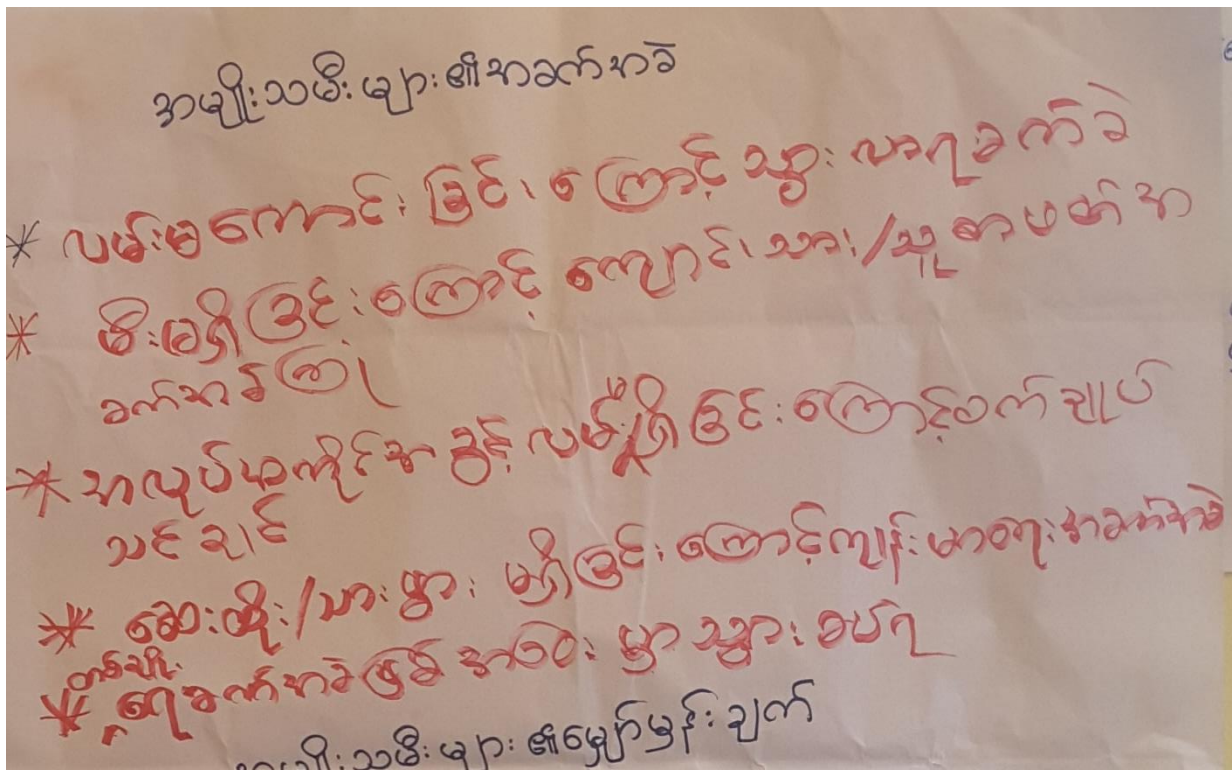 အမျိုးသမီးများ၏အခက်အခဲ
* လမ်းမကောင်းခြင်းကြောင့် သွားလာရခက်ခဲ
* မီးမရှိခြင်းကြောင့် ကျောင်းသား/သူ စာဖတ်အ
ခက်အခဲကြုံ
* အလုပ်အကိုင်အခွန့်လမ်းမရှိခြင်းကြောင့်စက်ချုပ်
သင်ချင်
* ဆေးထိုး/သားဖွား မရှိခြင်းကြောင့်ကျန်းမာရေးအခက်အခဲ
တစ်မျိုး
* ရေခက်အခဲဖြစ် အဝေးမှာသွားခပ်ရ
အမျိုးသမီးများ၏မျှော်မှန်းချက်